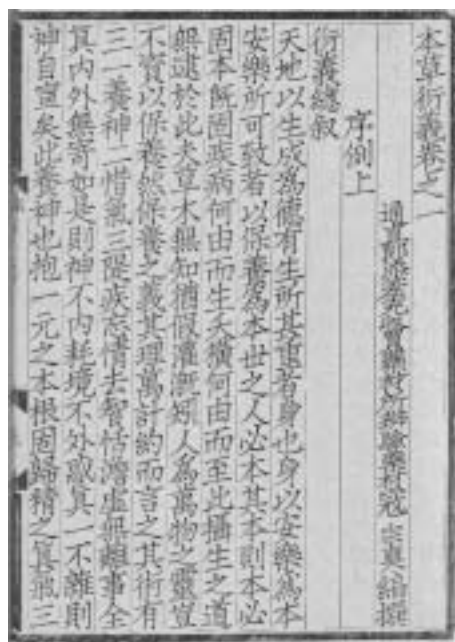 本草衍義卷之一
通直郎添差充收買藥材所辨驗藥材寇 宗奭 編撰
序例上
衍義總叙
天地以生成爲德有生所甚重者身也身以安樂爲本
安樂所可致者以保養爲本世之人必本其本則本必
固本既固疾病何由而生夭橫何由而至此攝生之道
無逮於此夫草木無知猶假灌漑矧人爲萬物之靈豈
不資以保養然保養之義其理萬計約而言之其術有
三一養神二惜氣三隄疾忘情去智恬澹虛無離事全
眞內外無寄如是則神不內耗境不外惑眞一不離則
神自寧矣此養神也抱一元之本根固歸精之眞氣三